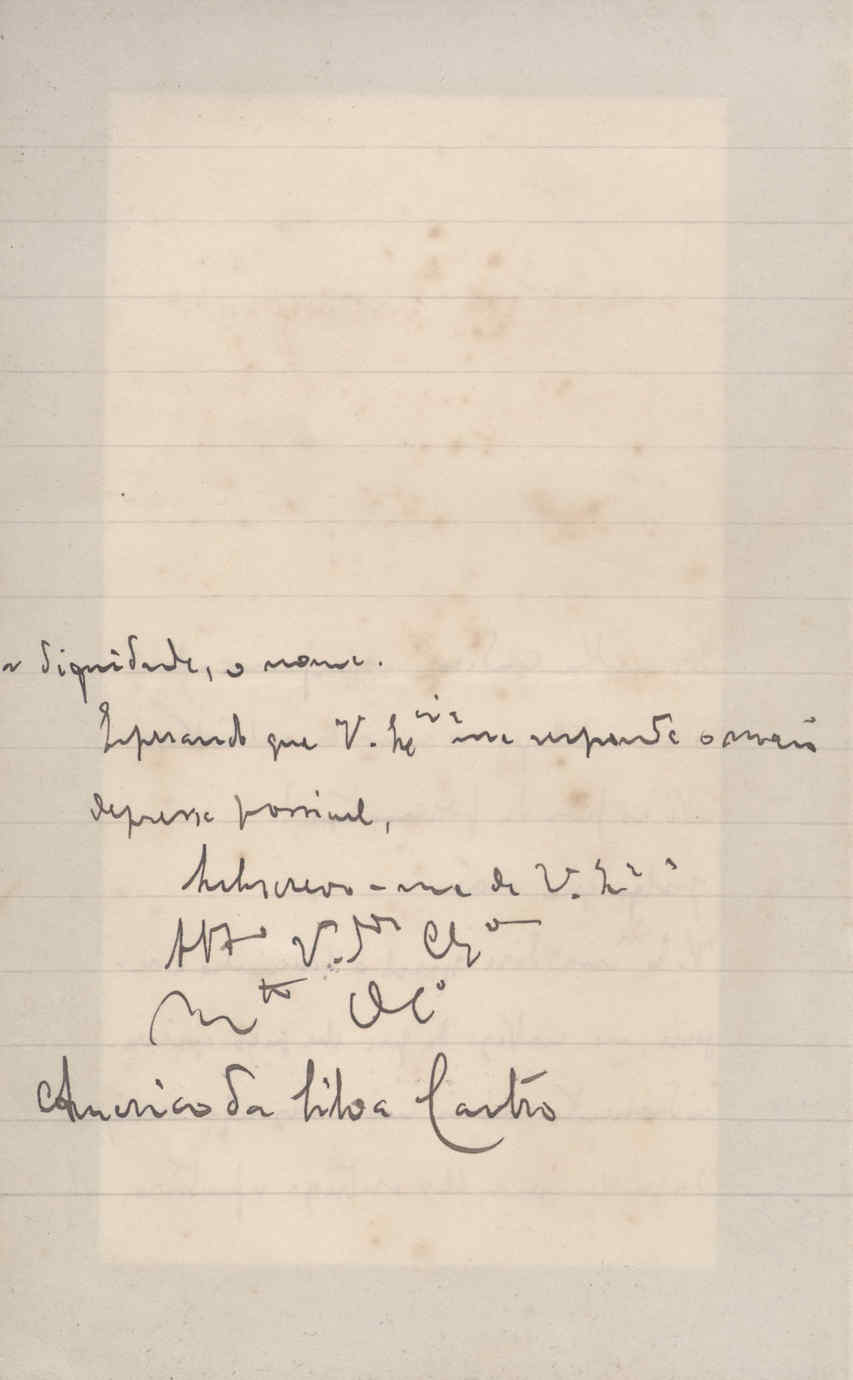 a dignidade, o nome.
Esperando que V. Exª me responda o mais
depressa possivel,
Subscrevo-me de V. Exª
Attº V.dor
Mto
Americo da Silva Castro